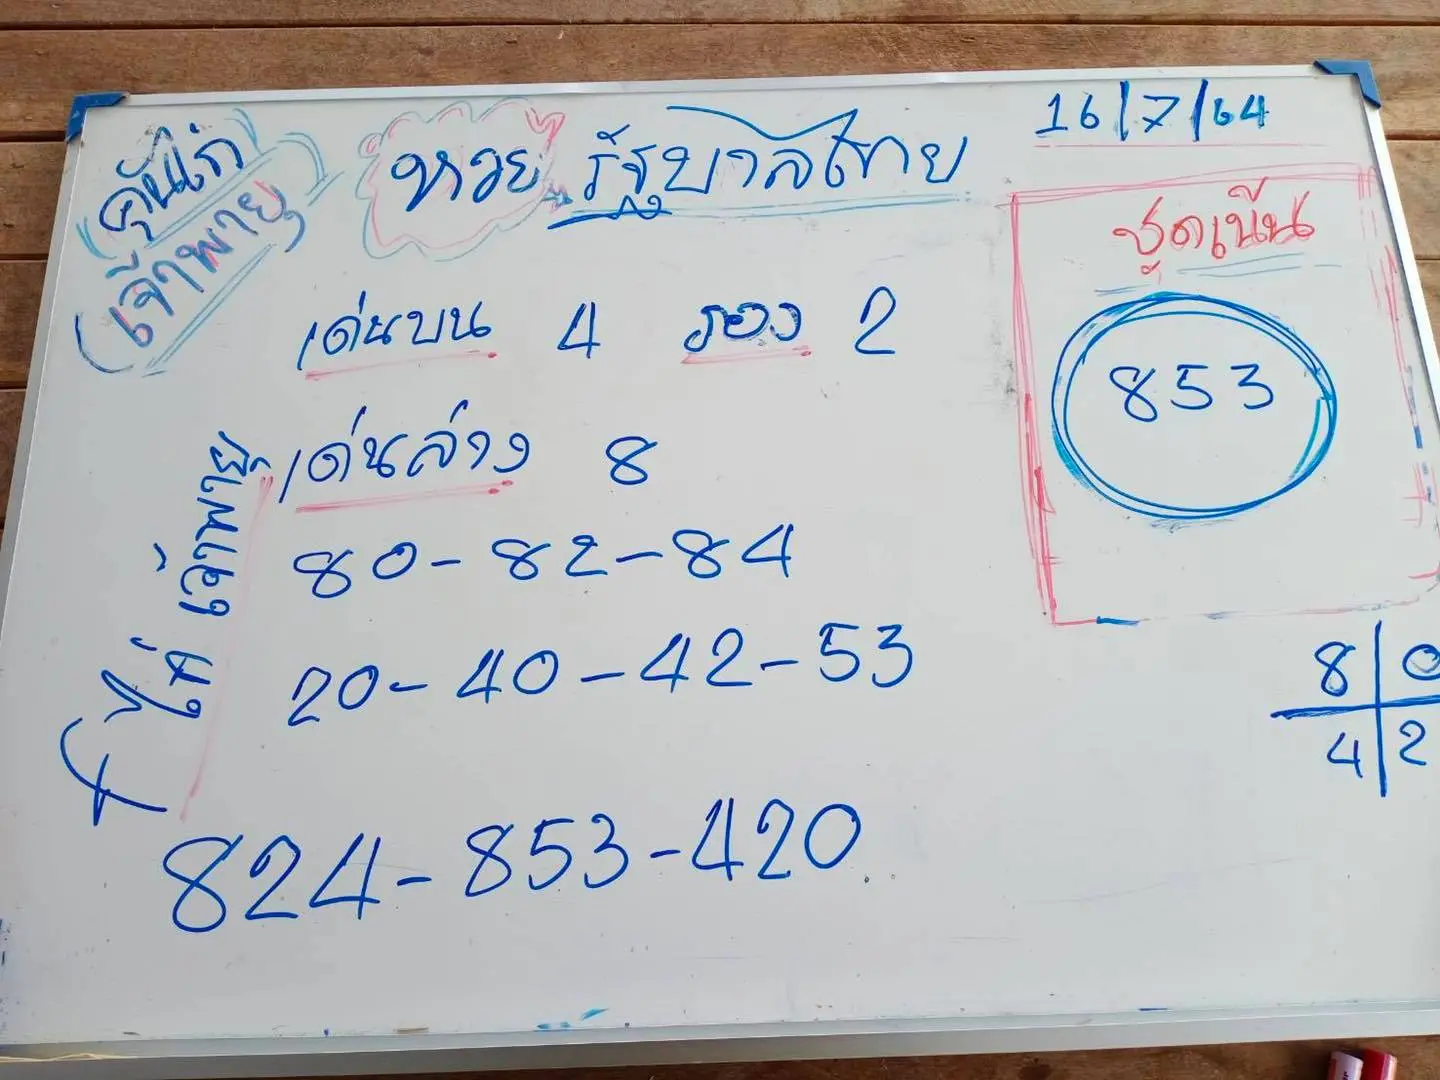 คุ้นไก่
เจ้าพายุ
หวย รัฐบาลไทย
16/7/64
ชุดเน้น
853
เด่นบน 4 รอง 2
เด่นล่าง 8
80-82-84
20-40-42-53
824-853-420
ไก่ เจ้าพายุ
8 0
4 2